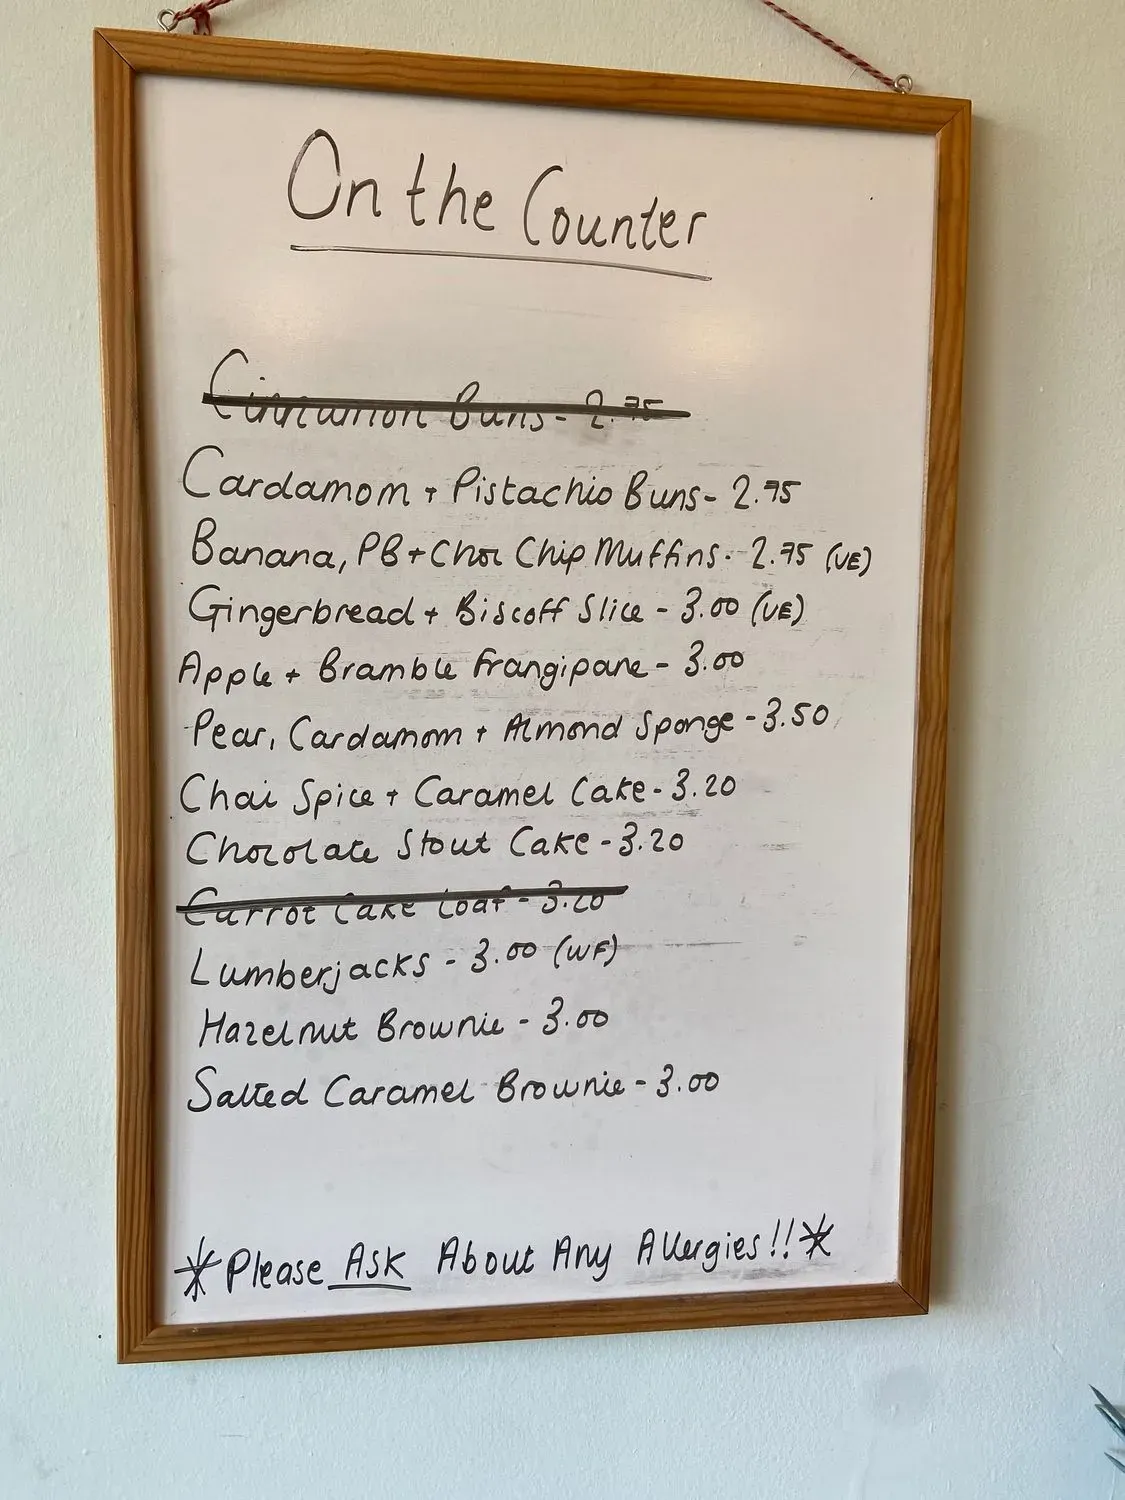 On the Counter
Cinnamon Buns - 2.75
Cardamom + Pistachio Buns - 2.75
Banana, PB + Choc Chip Muffins - 2.75 (VE)
Gingerbread + Biscoff Slice - 3.00 (VE)
Apple + Bramble Frangipane - 3.00
Pear, Cardamom + Almond Sponge - 3.50
Chai Spice + Caramel Cake - 3.20
Chocolate Stout Cake - 3.20
Carrot Cake Loaf - 3.20
Lumberjacks - 3.00 (WF)
Hazelnut Brownie - 3.00
Salted Caramel Brownie - 3.00
*Please ASK About Any Allergies!!*